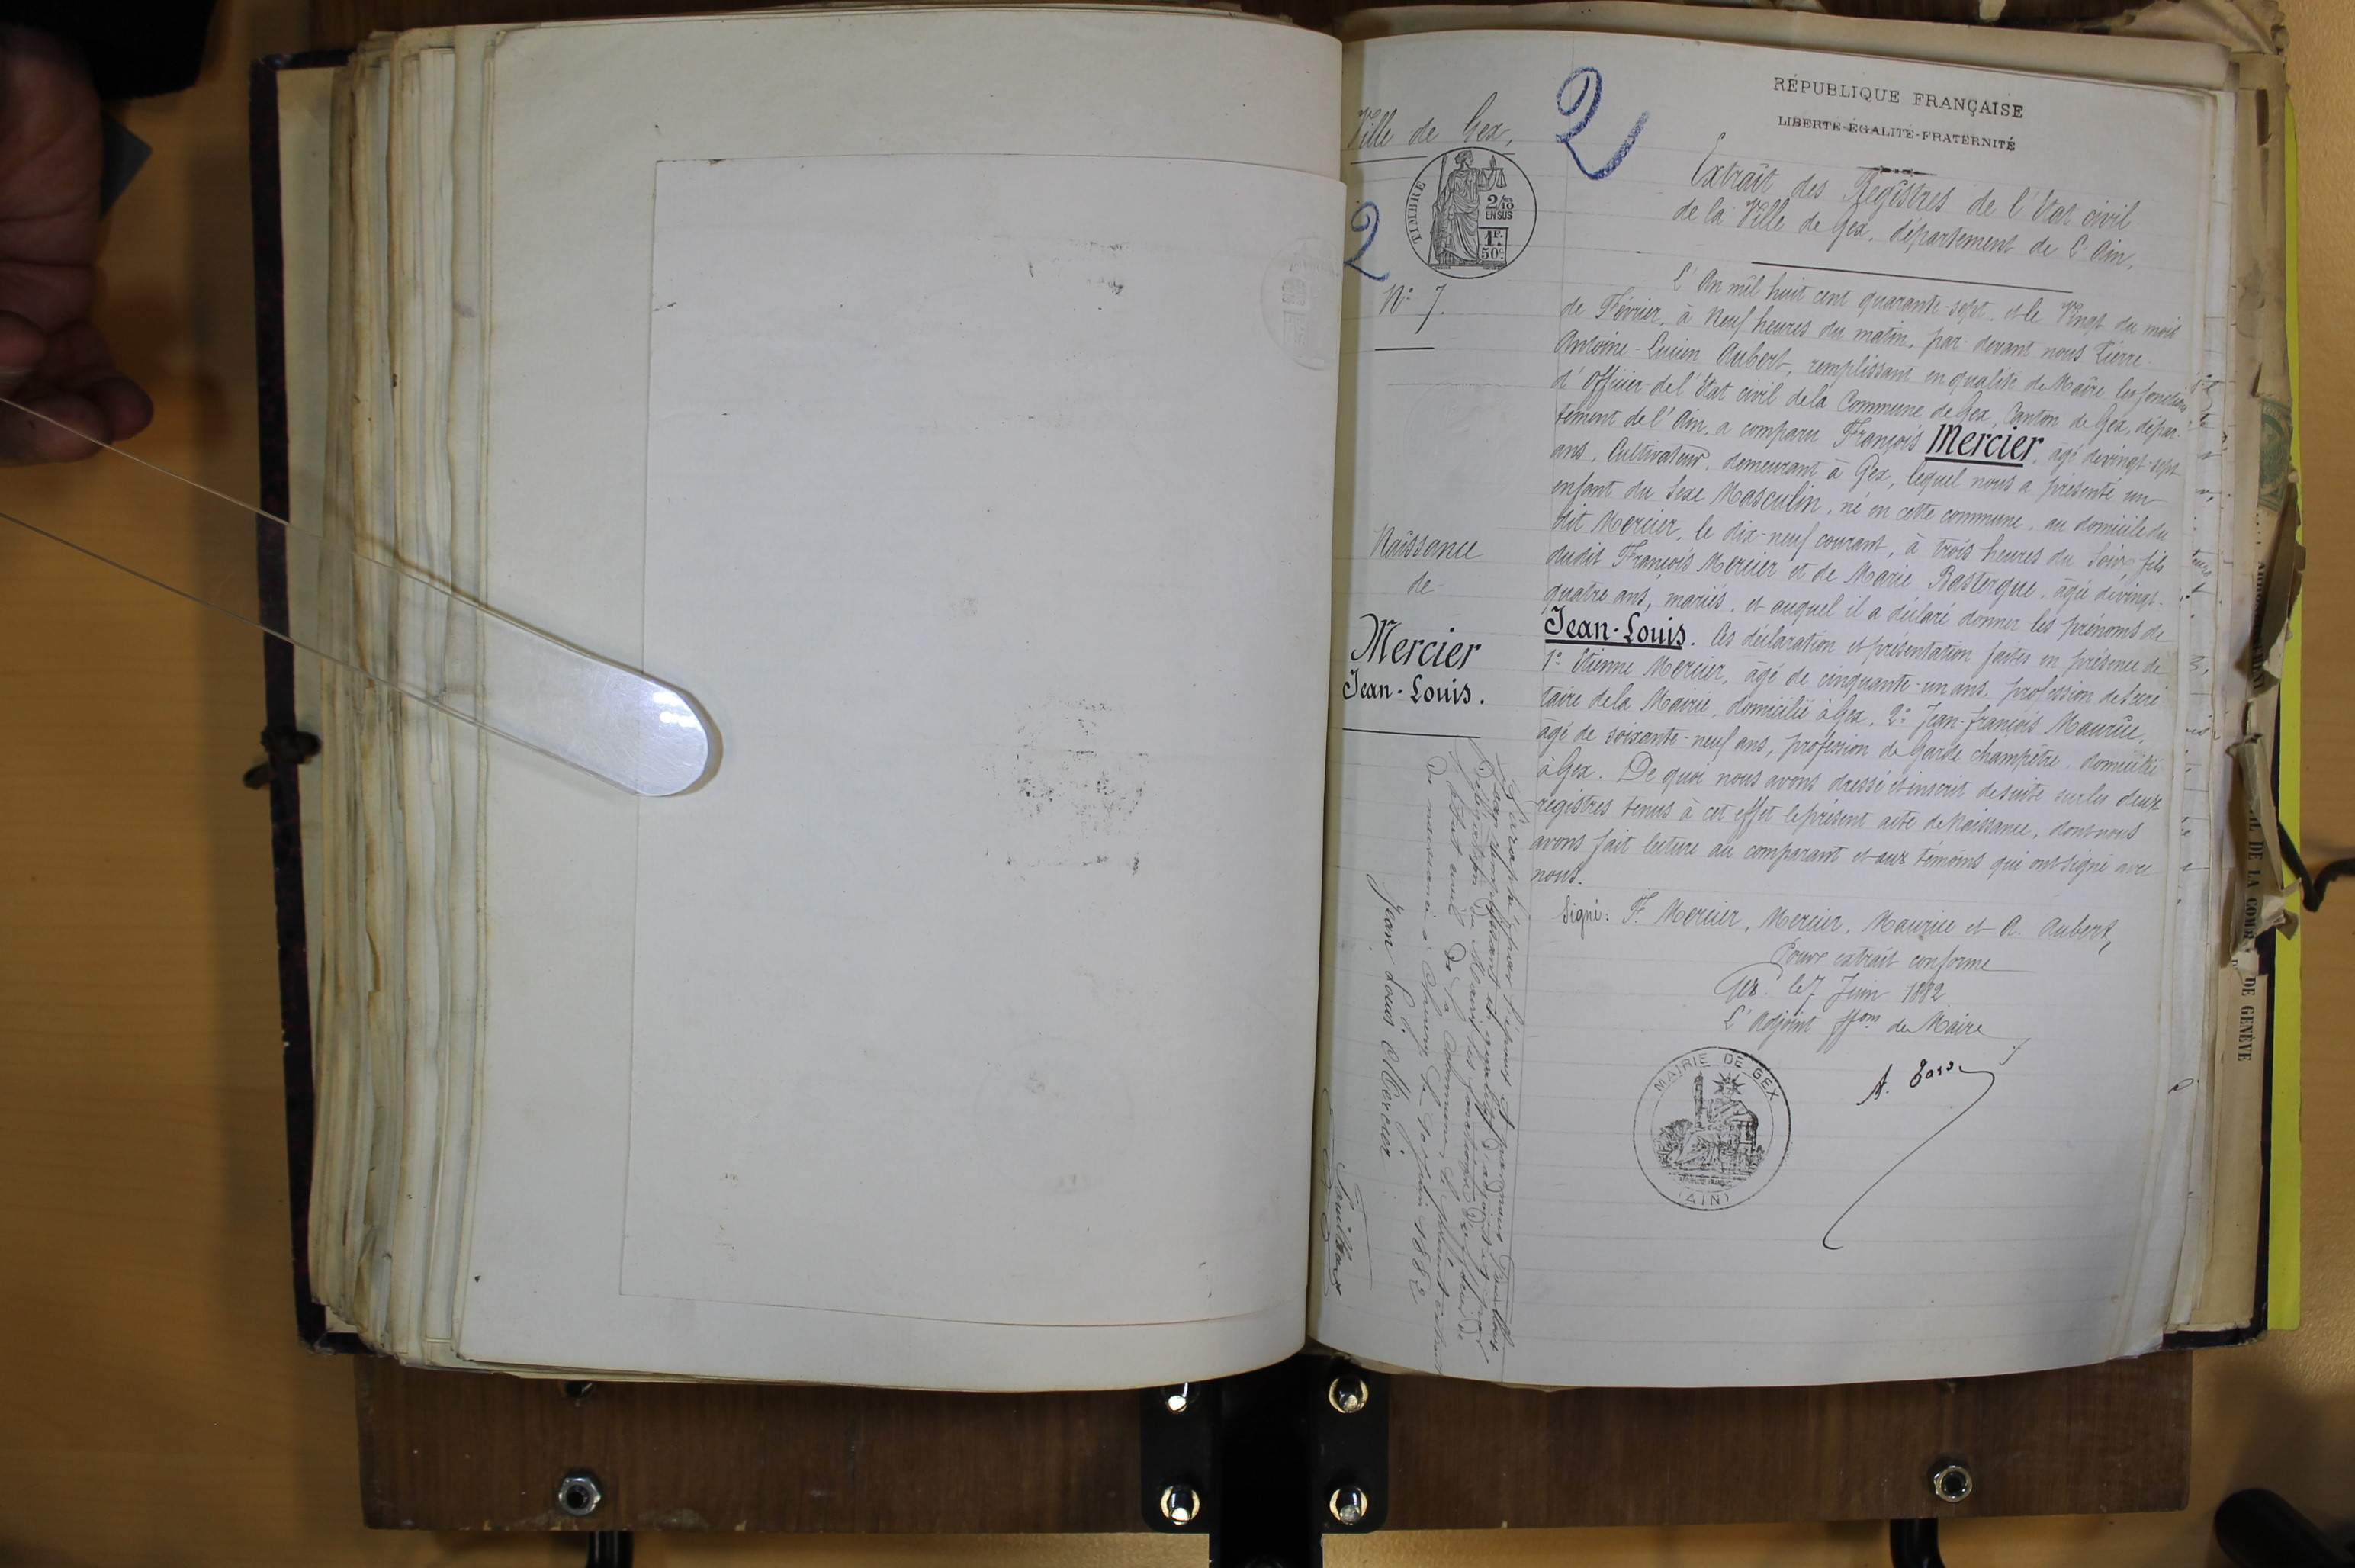 RÉPUBLIQUE FRANÇAISE
LIBERTÉ-ÉGALITÉ-FRATERNITÉ
Extrait des Registres de l'Etat civil
de la Ville de Gex, département de l'Ain.
Ville de Gex,
2
TIMBRE
2/10
EN SUS
1F.
50c
2
N° 7.
Naissance
de
Mercier
Jean-Louis.
L'An mil huit cent quarante-sept et le Vingt du mois
de Février, à Neuf heures du matin, par devant nous Pierre-
Antoine-Lucien Aubert, remplissant en qualité de Maire les fonctions
d'Officier de l'Etat civil de la Commune de Gex, Canton de Gex, dépar-
tement de l'Ain, a comparu François Mercier, âgé de vingt-sept
ans, Cultivateur, demeurant à Gex, lequel nous a présenté un
enfant du Sexe Masculin, né en cette commune, au domicile du
dit Mercier, le dix-neuf courant, à trois heures du Soir, fils
dudit François Mercier et de Marie Bastergue, âgée de vingt-
quatre ans, mariés, et auquel il a déclaré donner les prénoms de
Jean-Louis. Ces déclaration et présentation faites en présence de
1° Etienne Mercier, âgé de cinquante-un ans, profession de Secré-
taire de la Mairie, domicilié à Gex, 2° Jean-françois Maurice,
âgé de soixante-neuf ans, profession de Garde champêtre, domicilié
à Gex. De quoi nous avons dressé et inscrit de suite sur les deux
registres tenus à cet effet le présent acte de Naissance, dont nous
avons fait lecture au comparant et aux témoins qui ont signé avec
nous.
Signé: F. Mercier, Mercier, Maurice et A. Aubert,
Pour extrait conforme
Gex, le 7 Juin 1882
L'Adjoint ffons de Maire
MAIRIE DE GEX
(AIN)
Paraphé par l'époux et par nous
remplissant en qualité d'adjoint et par
Délégation du Maire les fonctions d'officier de
l'état civil de la Commune, le présent extrait
De naissance à le Juin 1882
Jean Louis Mercier
DE LA COUR DE GENÈVE